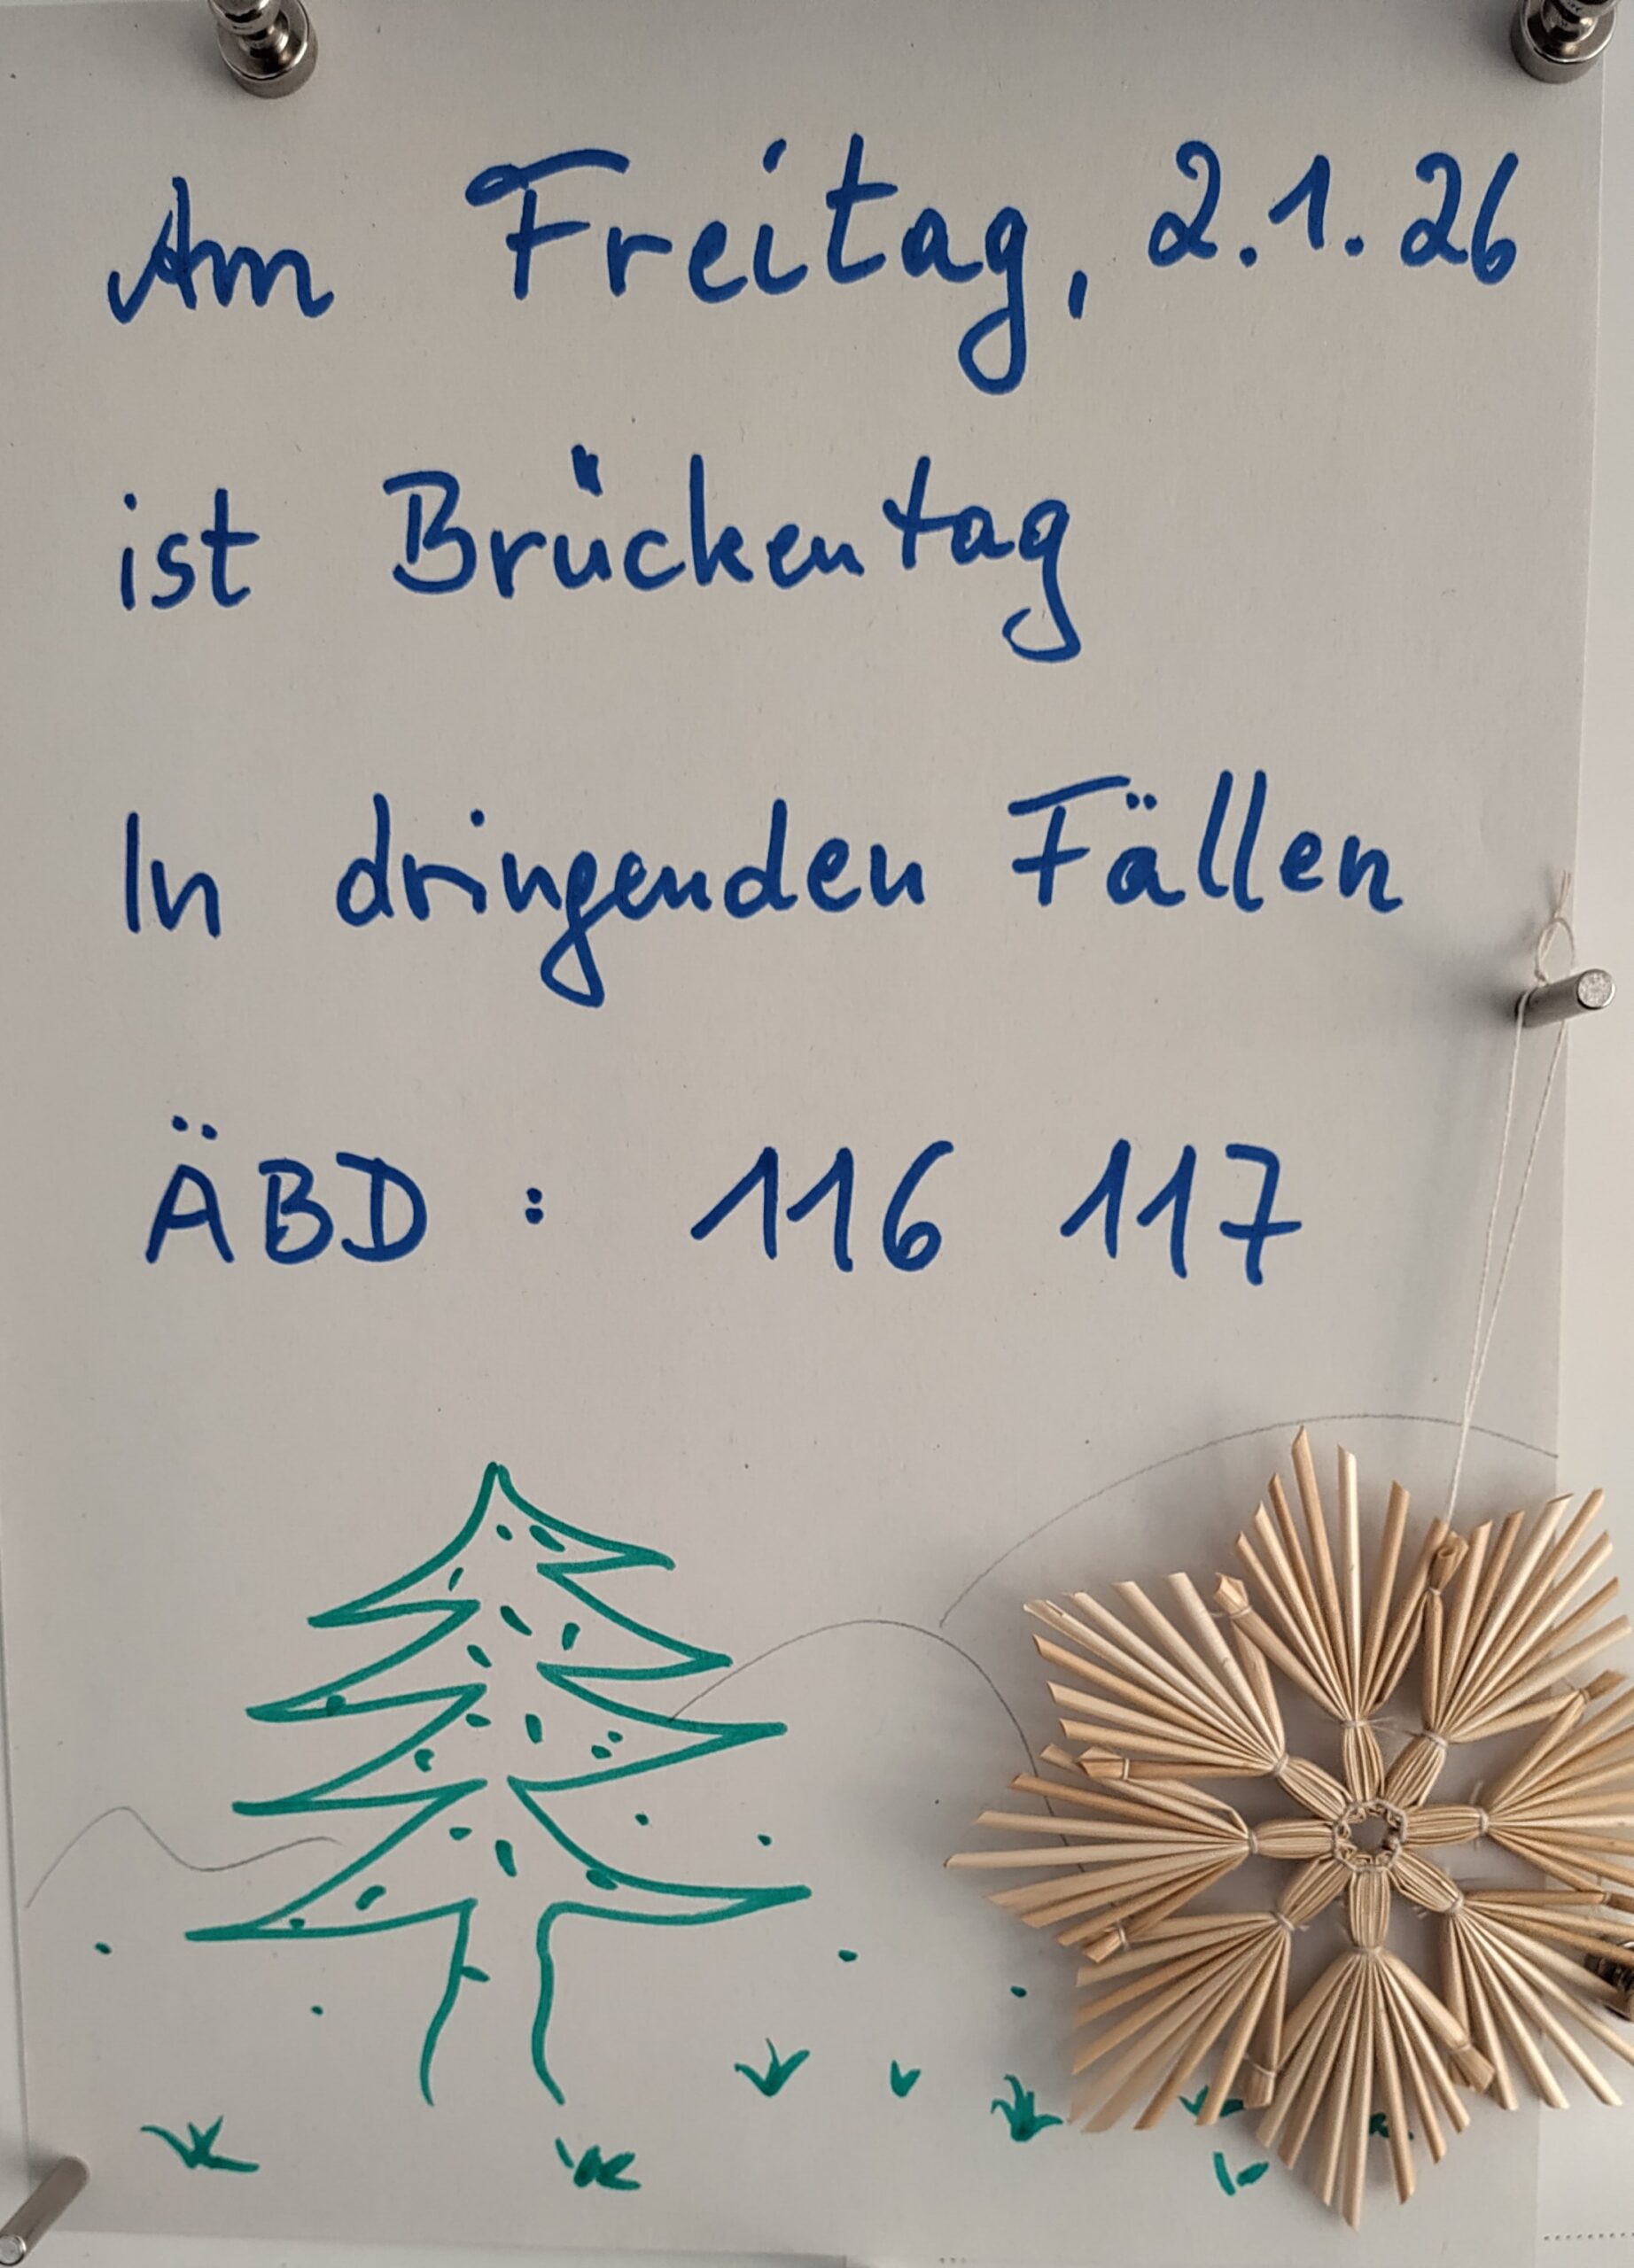 Am Freitag, 2.1.26
ist Brückentag
In dringenden Fällen
ÄBD : 116 117